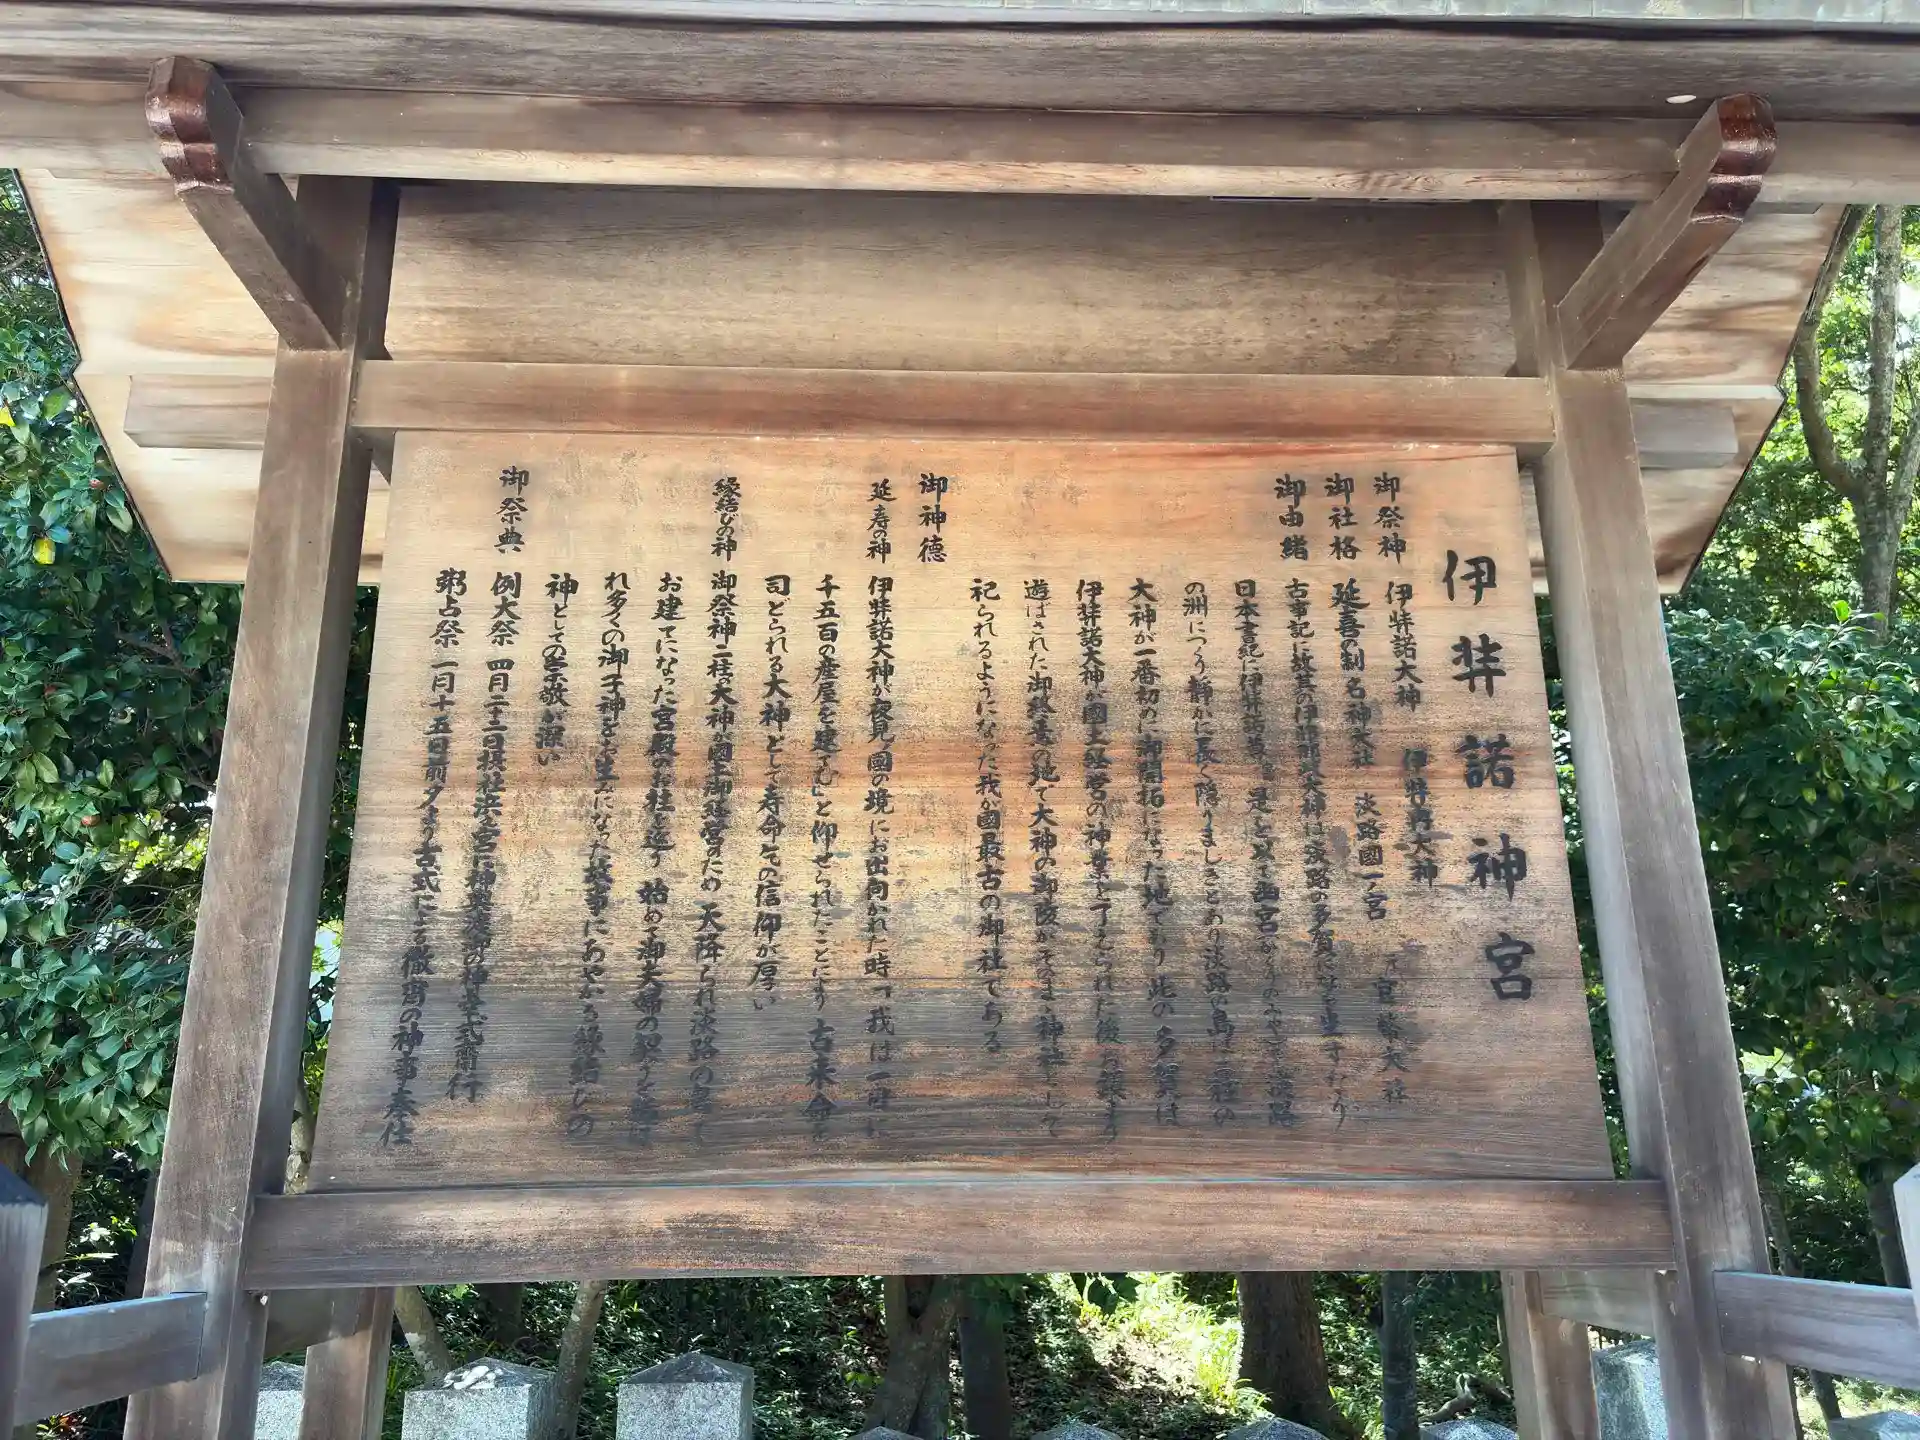 伊弉諾神宮
御祭神 伊弉諾大神 伊弉冉大神
御社格 延喜の制 名神大社 淡路國一ノ宮 元官幣大社
御由緒 古事記に故其の伊耶那岐大神は淡路の多賀になも坐すなり
日本書紀に伊弉諾尊 是を以て幽宮 を淡路
の洲につくり静かに長く隠りましきとあり淡路の島は二柱の
大神が一番初めに御開拓になった地であり此の多賀は
伊弉諾大神が國土経営の神業を了えられた後お鎮まり
遊ばされた御終焉の地で大神の御陵がそのまゝ神社として
祀られるようになった我が國最古の御社である
御神徳
延寿の神 伊弉諾大神が夜見ノ國の境にお出向かれた時「我は一日に
千五百の産屋を建てむ」と仰せられたことにより古来命を
司どられる大神として寿命との信仰が厚い
縁結びの神 御祭神二柱の大神が國土御経営のため天降られ淡路の君て
お建てになった宮殿のお柱を廻り始めて御夫婦の契りを
れ多くの御子神をお生みになった故事にあやかる縁結びの
神としての崇敬が深い
御祭典 例大祭 四月二十二日摂社浜宮に神輿渡御の神幸式斎行
粥占祭 一月十五日前夕より古式による徹宵の神事奉仕